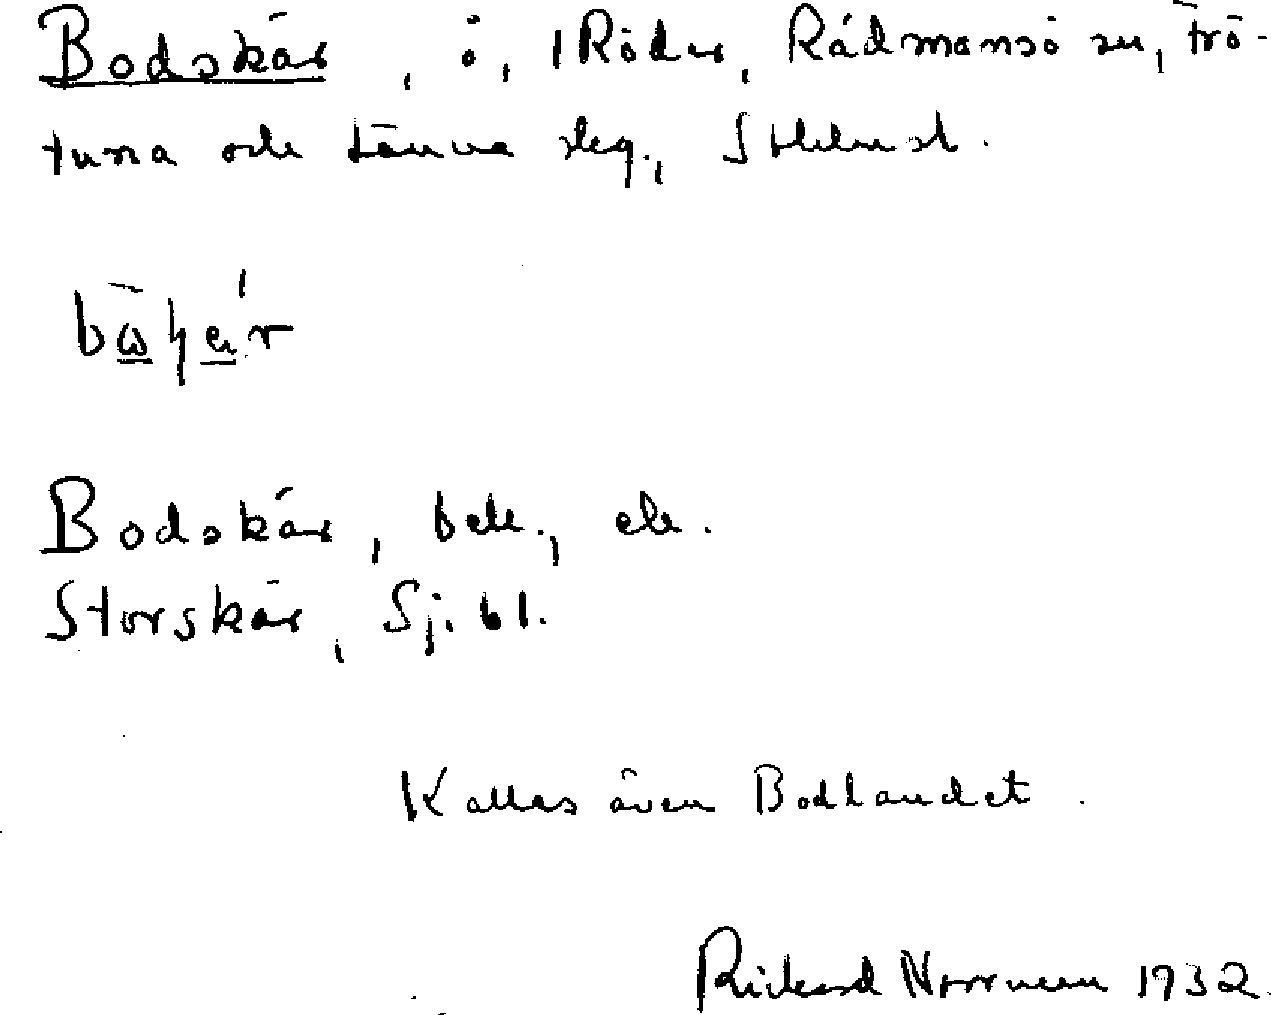 Bodskär, ö, i Röder, Rådmansö sn, Frö-
tuna och Länna sleg., Sthlms l.
Bodskär, bek., ek.
Storskär, Sj. bl.
Kallas även Bodlandet.
Rickard Norrman 1932.